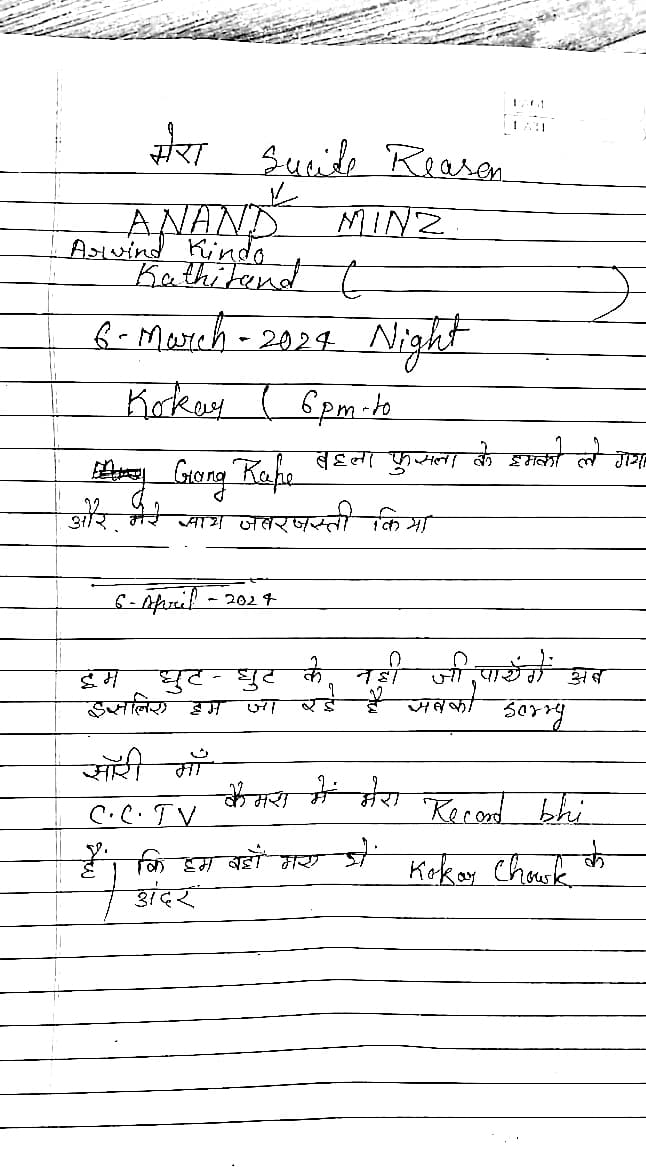 मेरा Sucide Reason
ANAND MINZ
Arvind Kindo
Kathitand ( )
6-March-2024 Night
Kokar ( 6pm-to
Gang Rape बहला फुसला के हमको ले गया
और मेरे साथ जबरजस्ती किया
6-April-2024
हम घुट-घुट के नही जी पायेंगे अब
इसलिए हम जा रहे है सबको sorry
सॉरी माँ
C.C.TV कैमरा में मेरा Record bhi
हैं, कि हम वहाँ Kokar Chowk के
अंदर